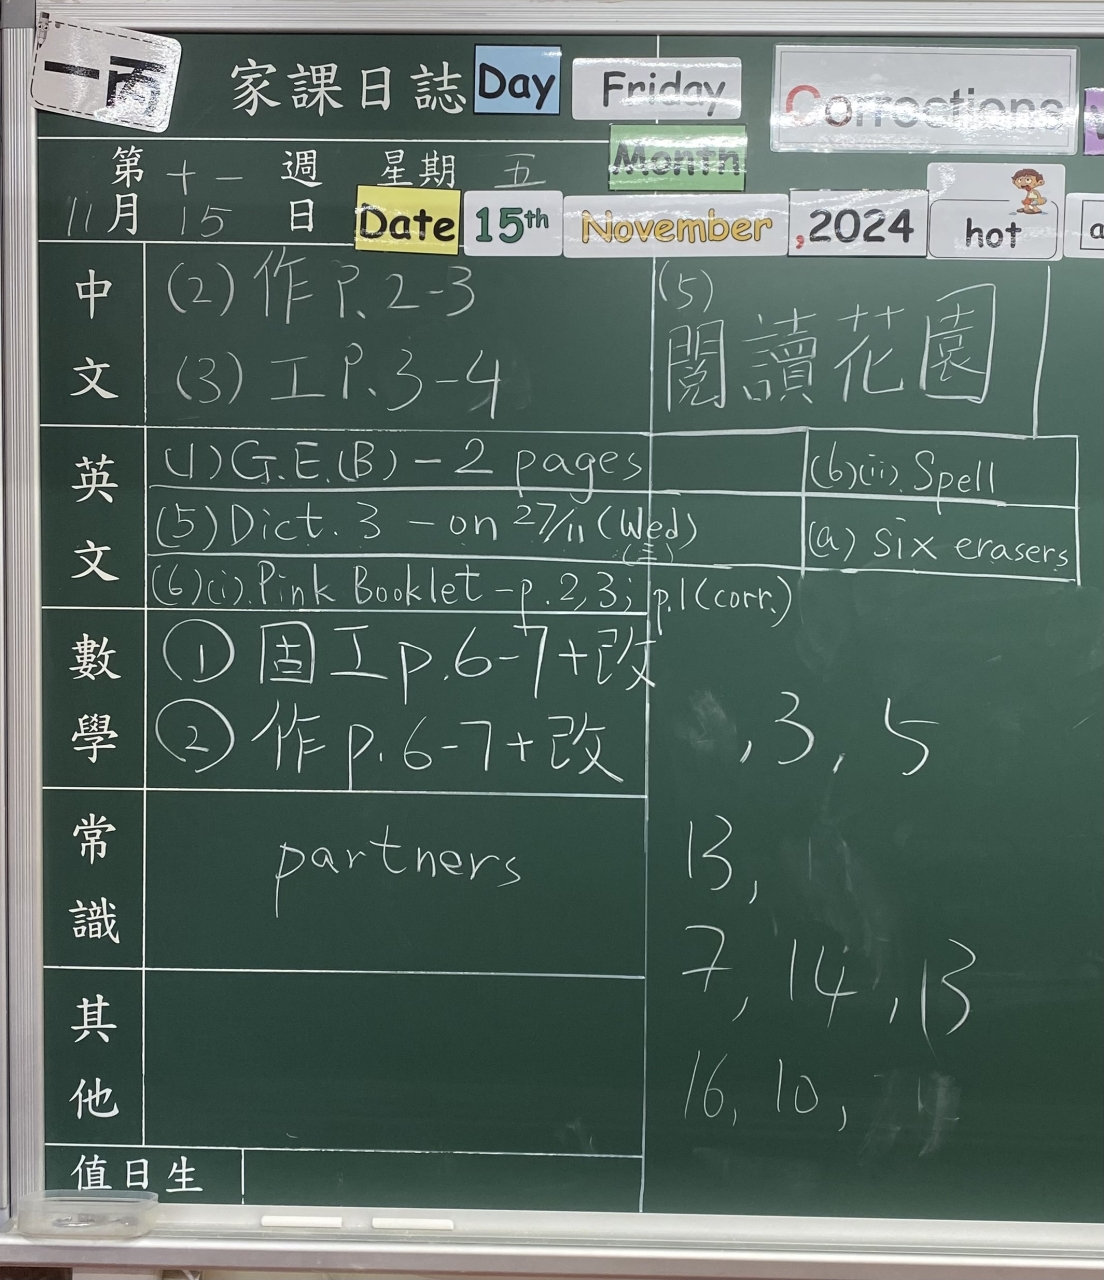 一丙 家課日誌 Day Friday Corrections
Month
第十一週 星期五
11月15日 Date 15th November ,2024 hot
中文
(2) 作 P. 2-3
(3) 工 P. 3-4
(5)
閱讀花園
英文
(1) G.E.(B) - 2 pages
(6)(ii). Spell
(5) Dict. 3 - on 27/11 (Wed)
(三)
(a) six erasers
(6)(i). Pink Booklet - p. 2, 3; p.1 (corr.)
數學
① 固工 p. 6-7+改
② 作 p. 6-7+改
, 3, 5
常識
partners
13,
7, 14, 13
其他
16, 10,
值日生